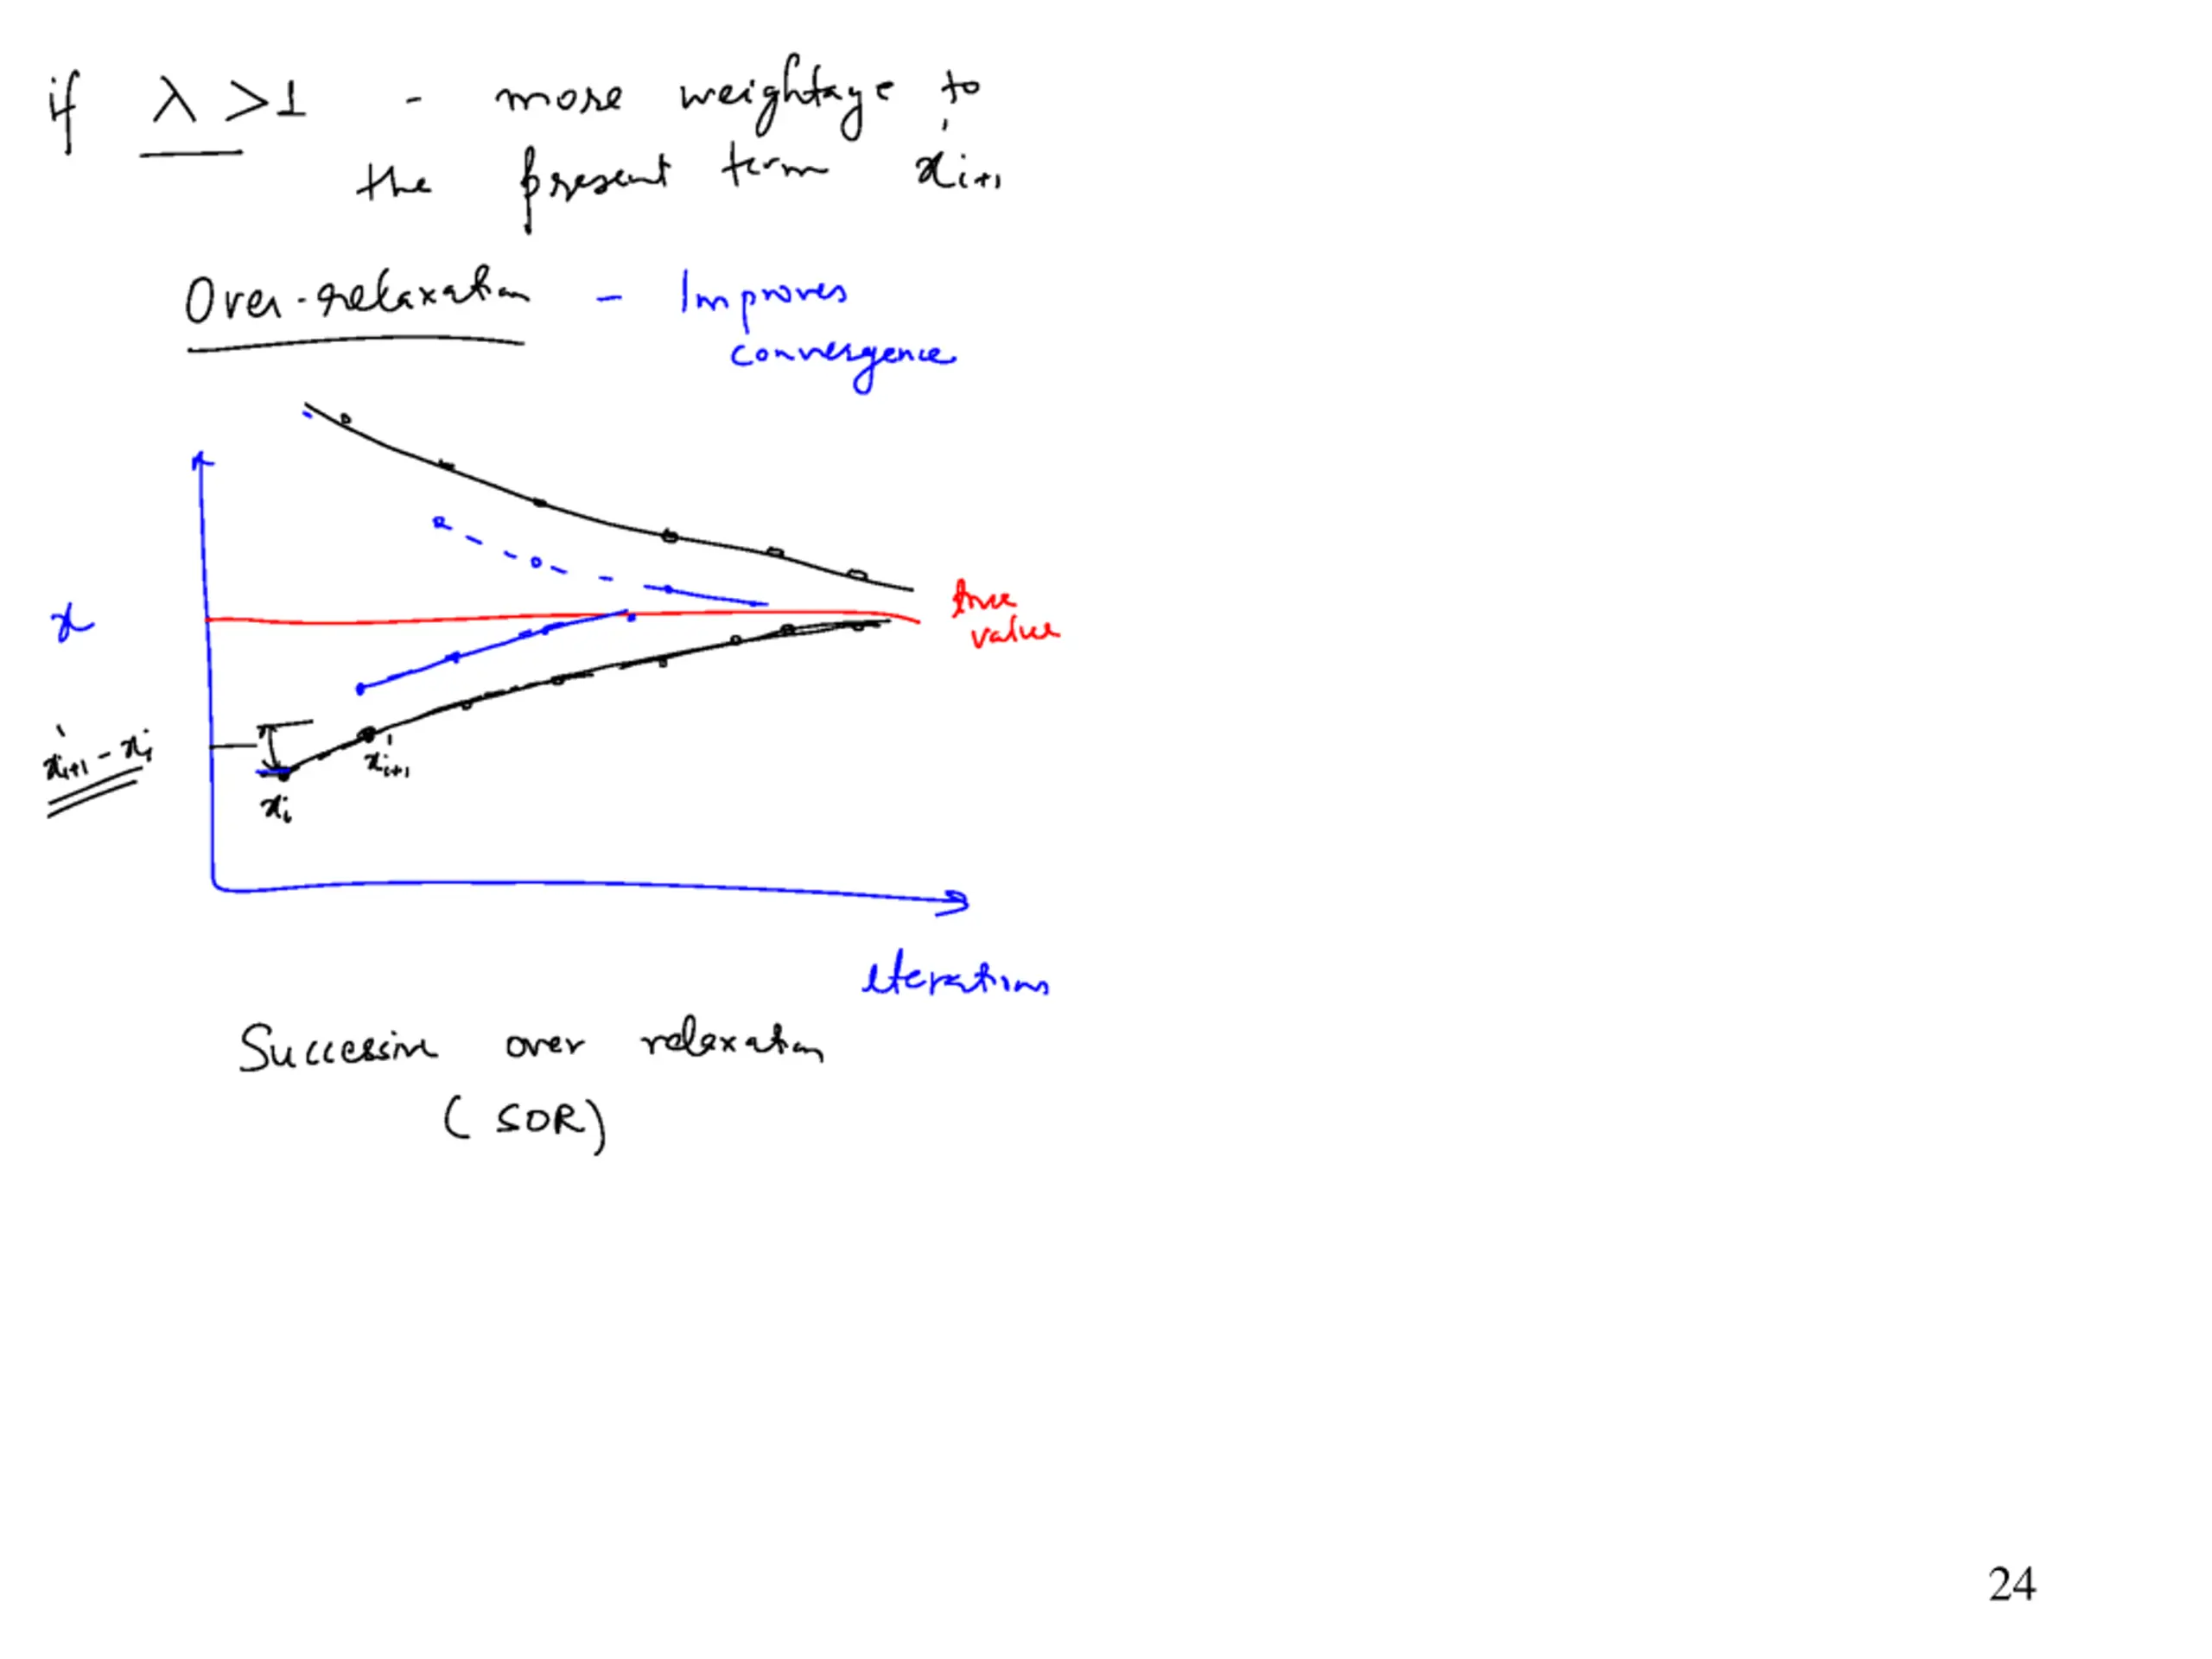 if λ > 1 - more weightage to
the present term x'i+1
Over-relaxation - Improves
convergence
true
value
x
x'i+1 - xi
x'i+1
xi
iterations
Successive over relaxation
(SOR)
24